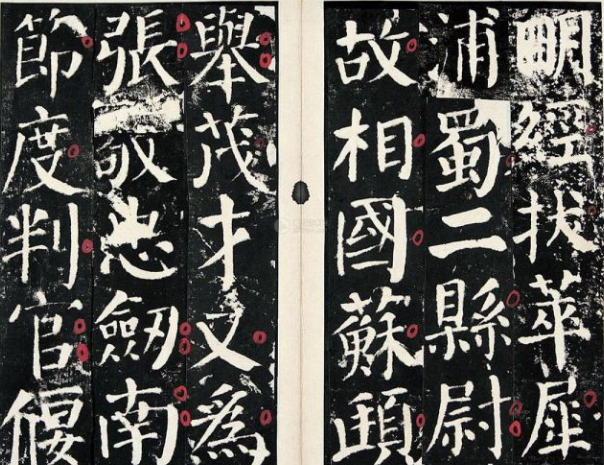 眀經拔萃犀
浦蜀二縣尉
故相國蘇頲
舉茂才又爲
張敬忠劒南
節度判官偃